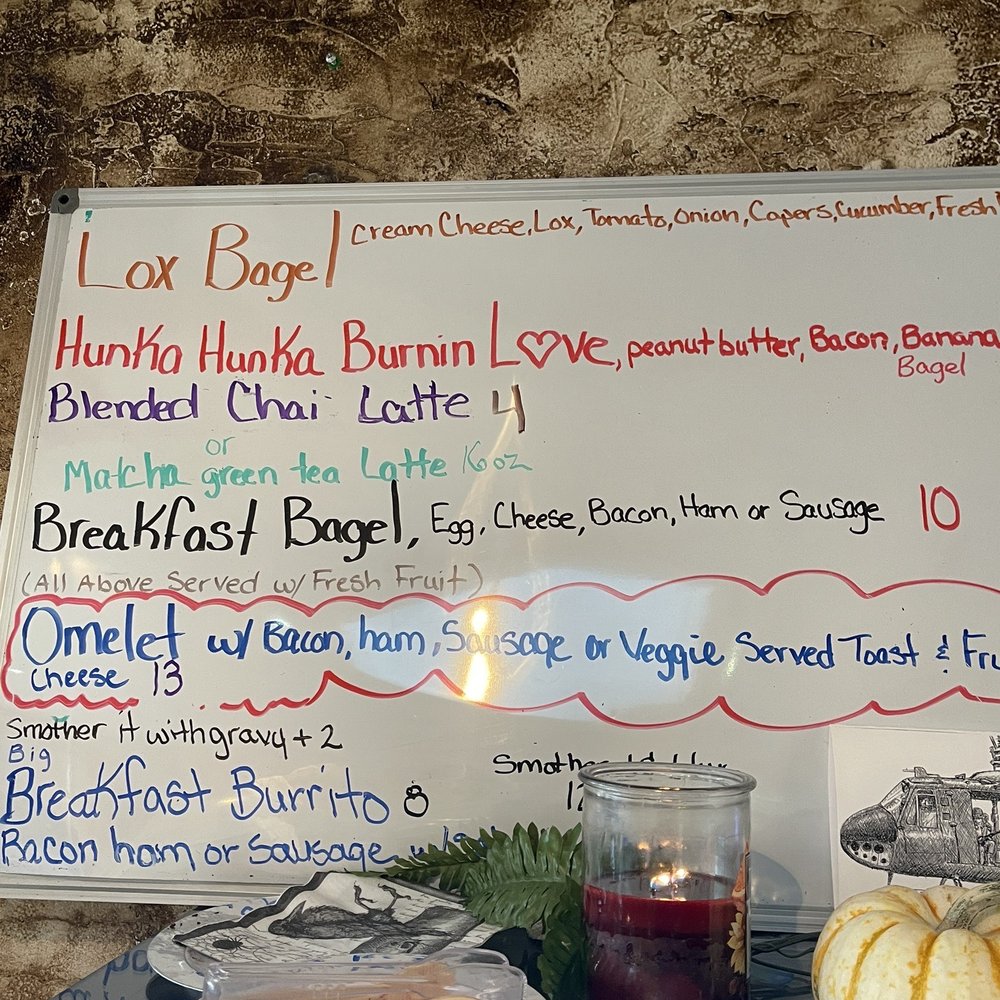 Lox Bagel Cream Cheese, Lox, Tomato, Onion, Capers, Cucumber, Fresh
Hunka Hunka Burnin L♡ve, peanut butter, Bacon, Banana
Bagel
Blended Chai Latte 4
or
Matcha green tea Latte 16oz
Breakfast Bagel, Egg, Cheese, Bacon, Ham or Sausage 10
(All Above Served w/ Fresh Fruit)
Omelet w/ Bacon, ham, Sausage or Veggie Served Toast & Fru
cheese 13
Smother it with gravy + 2
Big
Breakfast Burrito 8
Bacon ham or Sausage